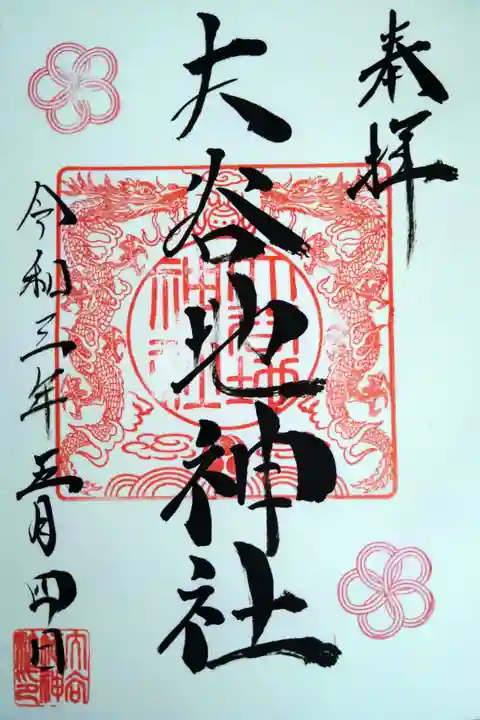 奉拝
大谷地神社
大谷地神社
令和三年五月四日